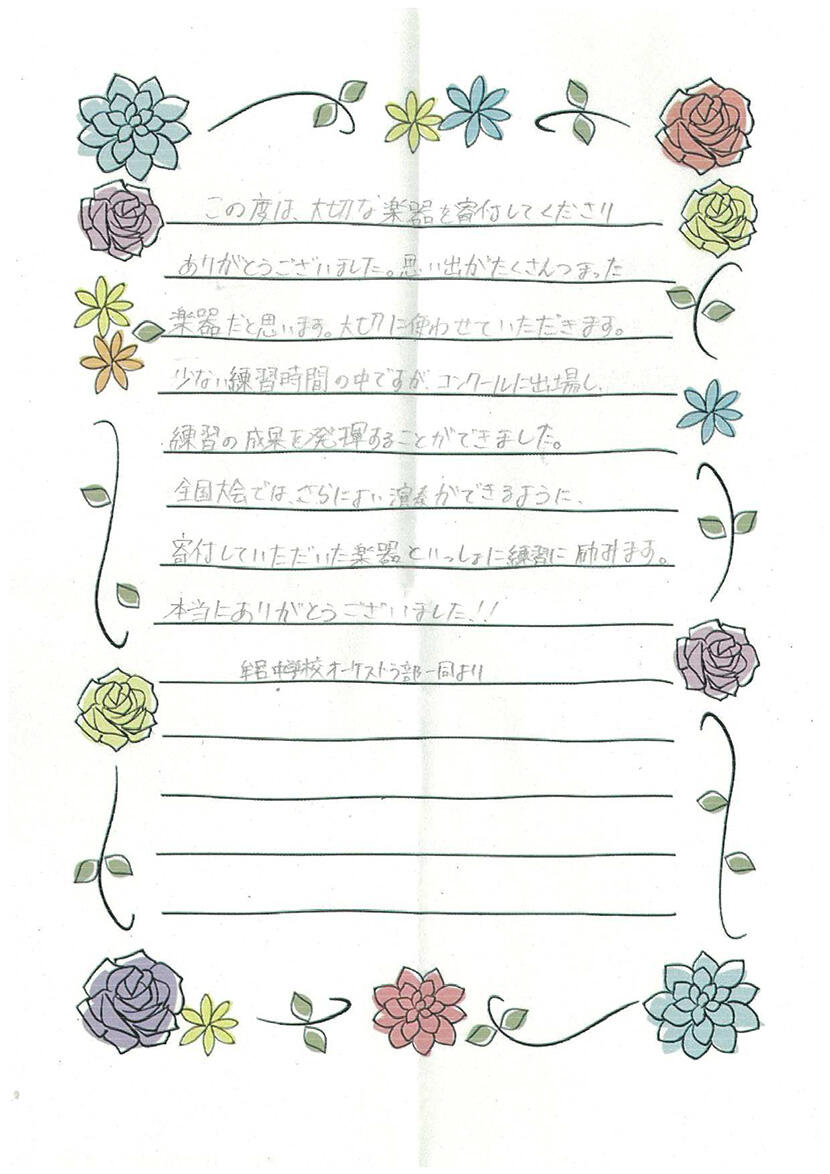 この度は、大切な楽器を寄付してくださり
ありがとうございました。思い出がたくさんつまった
楽器だと思います。大切に使わせていただきます。
少ない練習時間の中ですが、コンクールに出場し、
練習の成果を発揮することができました。
全国大会では、さらによい演奏ができるように、
寄付していただいた楽器といっしょに練習に励みます。
本当にありがとうございました!!
牟呂中学校オーケストラ部一同より